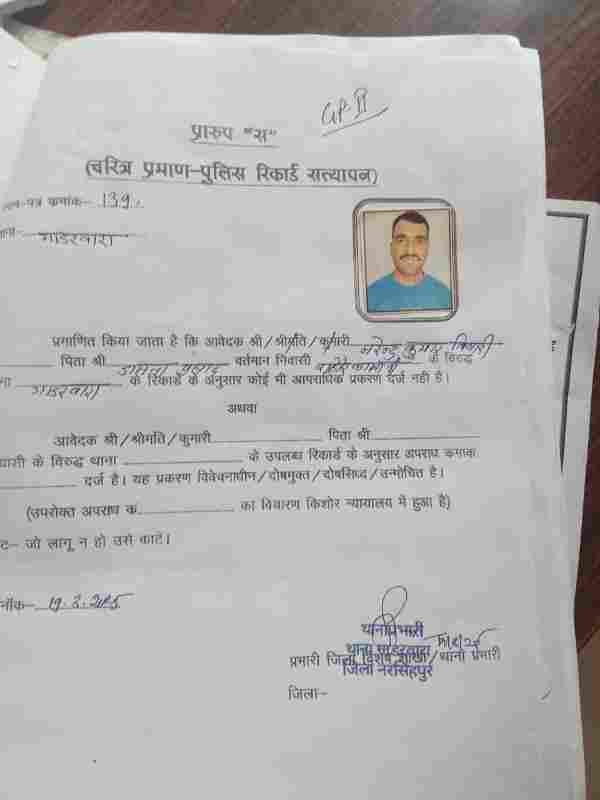 GP II
प्रारुप "स"
(चरित्र प्रमाण-पुलिस रिकार्ड सत्यापन)
पत्र क्रमांक- 139.
गाडरवारा
प्रमाणित किया जाता है कि आवेदक श्री/श्रीमति/कुमारी नरेन्द्र कुमार तिवारी
पिता श्री प्रसाद वर्तमान निवासी के विरुद्ध
गाडरवारा के रिकार्ड के अनुसार कोई भी आपराधिक प्रकरण दर्ज नही है।
अथवा
आवेदक श्री/श्रीमति/कुमारी पिता श्री
वासी के विरुद्ध थाना के उपलब्ध रिकार्ड के अनुसार अपराध कमाक
दर्ज है। यह प्रकरण विवेचनाधीन/दोषमुक्त/दोषसिध्द/उन्मोचित है।
(उपरोक्त अपराध क. का विवारण किशोर न्यायालय में हुआ है)
ट- जो लागू न हो उसे काटें।
नॉक- 19.2.2025
थाना प्रभारी
थाना गाडरवारा
प्रभारी जिला विशेष शाखा/थाना प्रभारी
जिला नरसिंहपुर
जिला-